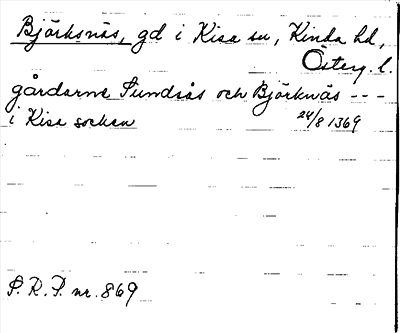 Björksnäs, gd i Kisa sn, Kinda hd,
Österg. l.
gårdarne Sundsås och Björknäs ---
i Kisa socken 24/8 1369
S. R. P. nr. 869